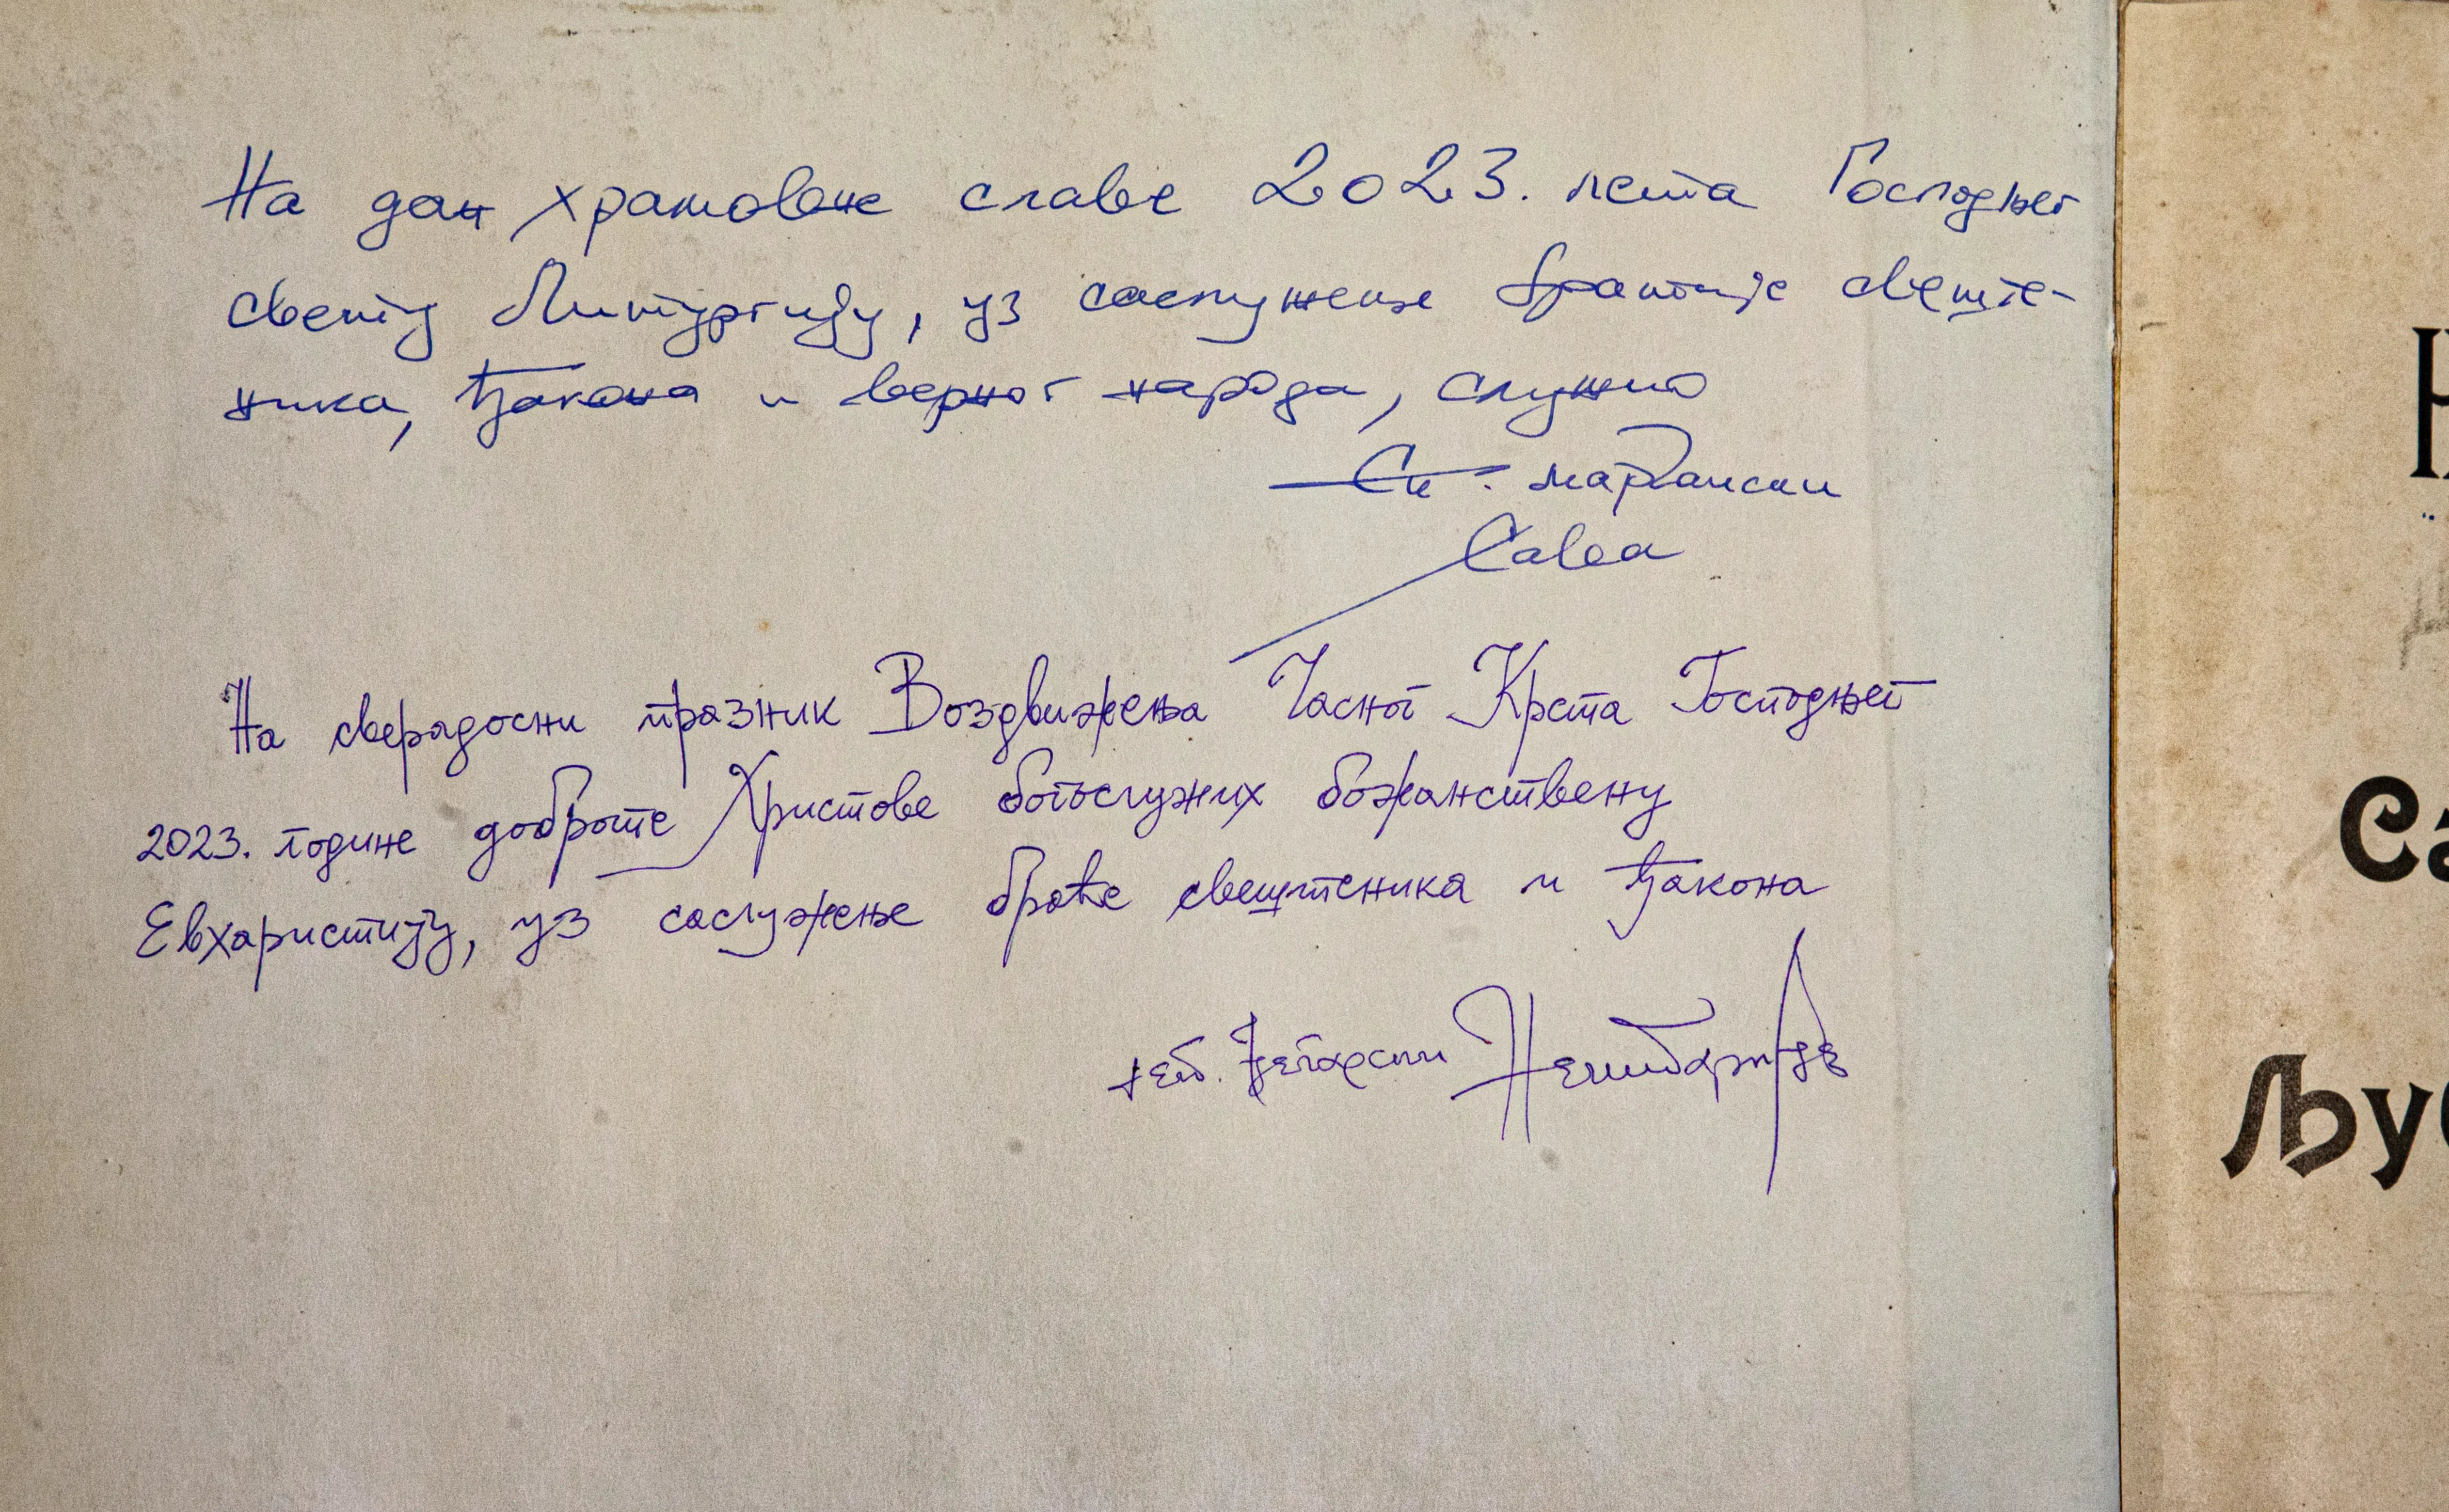 На дан храмовне славе 2023. лета Господњег
свету Литургију, уз саслужење братије свеште-
ника, ђакона и верног народа, служио
Еп. марчански
Сава
На сверадосни празник Воздвижења Часног Крста Господњег
2023. године доброте Христове богослужих божанствену
Евхаристију, уз саслужење браће свештеника и ђакона
јеп.
Са
Љу